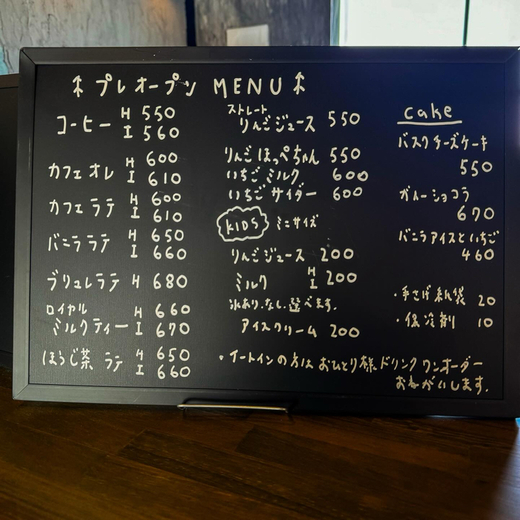 プレオープン MENU
コーヒー H 550
I 560
カフェオレ H 600
I 610
カフェラテ H 600
I 610
バニララテ H 650
I 660
ブリュレラテ H 680
ロイヤル
ミルクティー H 660
I 670
ほうじ茶 ラテ H 650
I 660
ストレート
りんごジュース 550
りんごほっぺちゃん 550
いちごミルク 600
いちごサイダー 600
KIDS ミニサイズ
りんごジュース 200
ミルク H
I 200
氷あり、なし、選べます。
アイスクリーム 200
cake
バスクチーズケーキ
550
ガトーショコラ
670
バニラアイスといちご
460
・手さげ紙袋 20
・保冷剤 10
・イートインの方はおひとり様ドリンクワンオーダー
おねがいします。